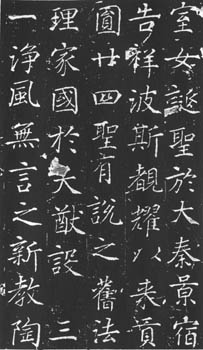 室女誕聖於大秦景宿
告祥波斯覩耀以来貢
圓廿四聖有說之舊法
理家國於大猷設三
一淨風無言之新教陶